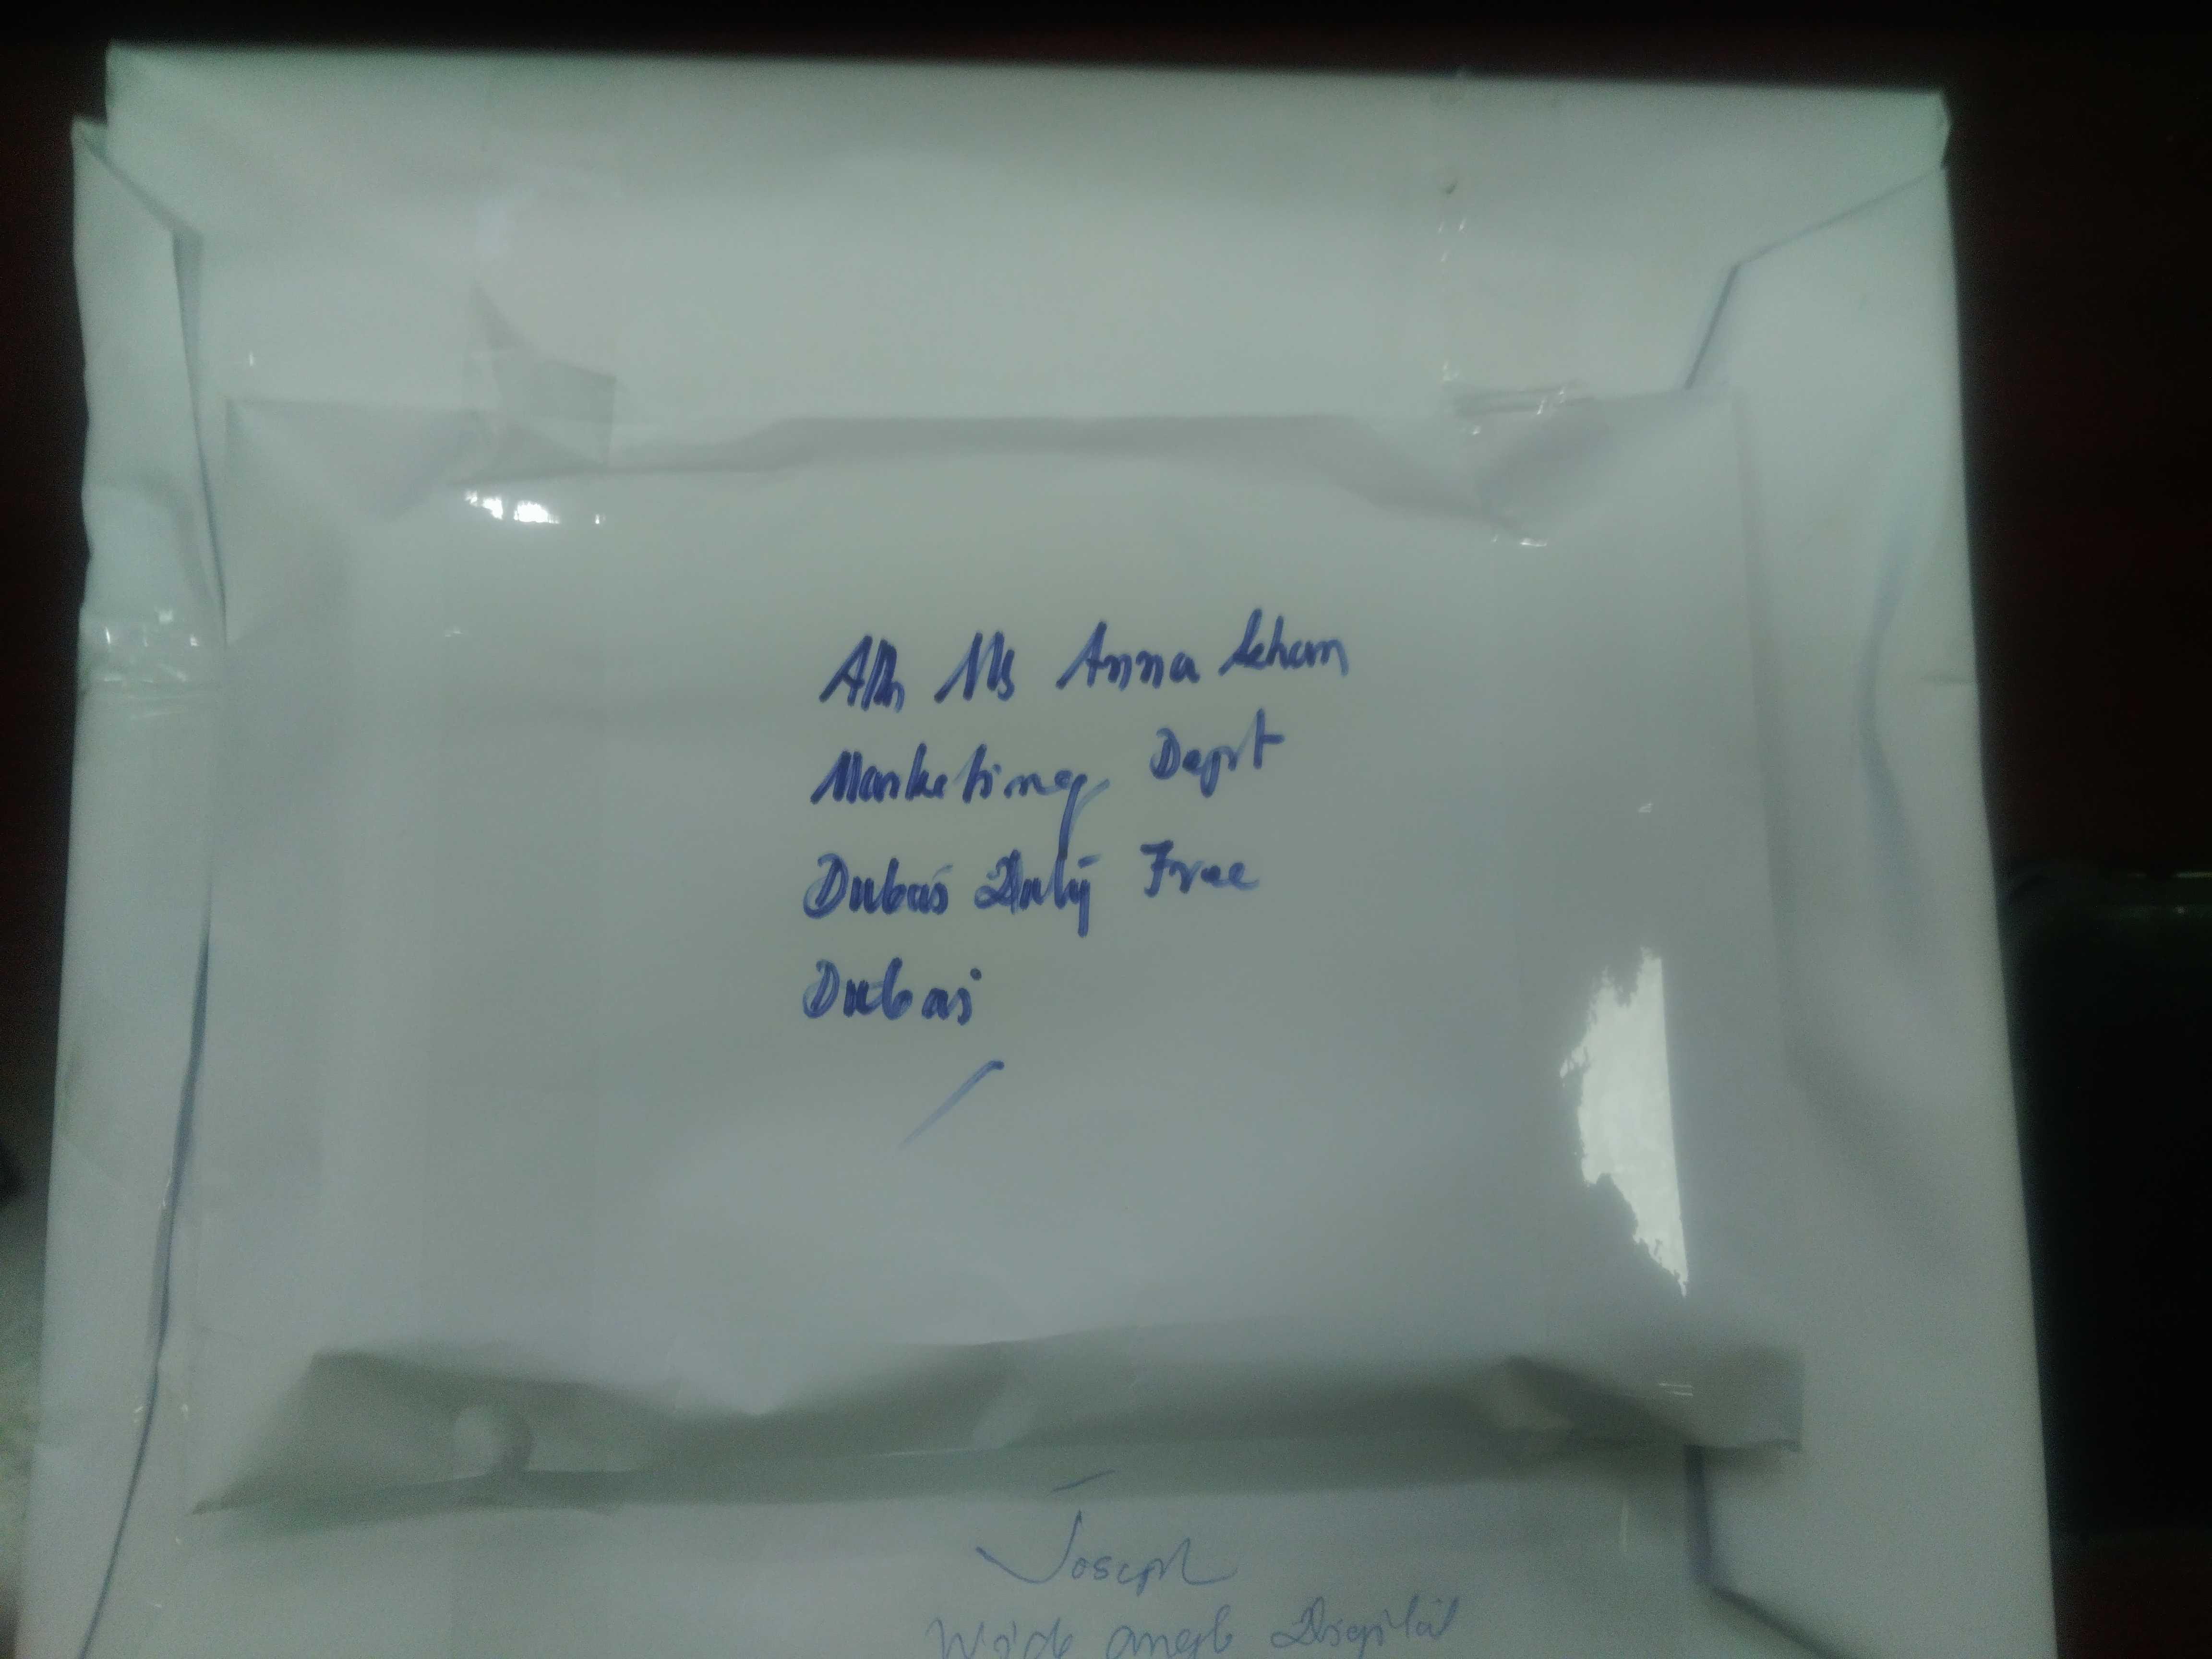 Attn Ms Anna
Marketing Dept
Dubai Duty Free
Dubai
Joseph
Wide angle Digital